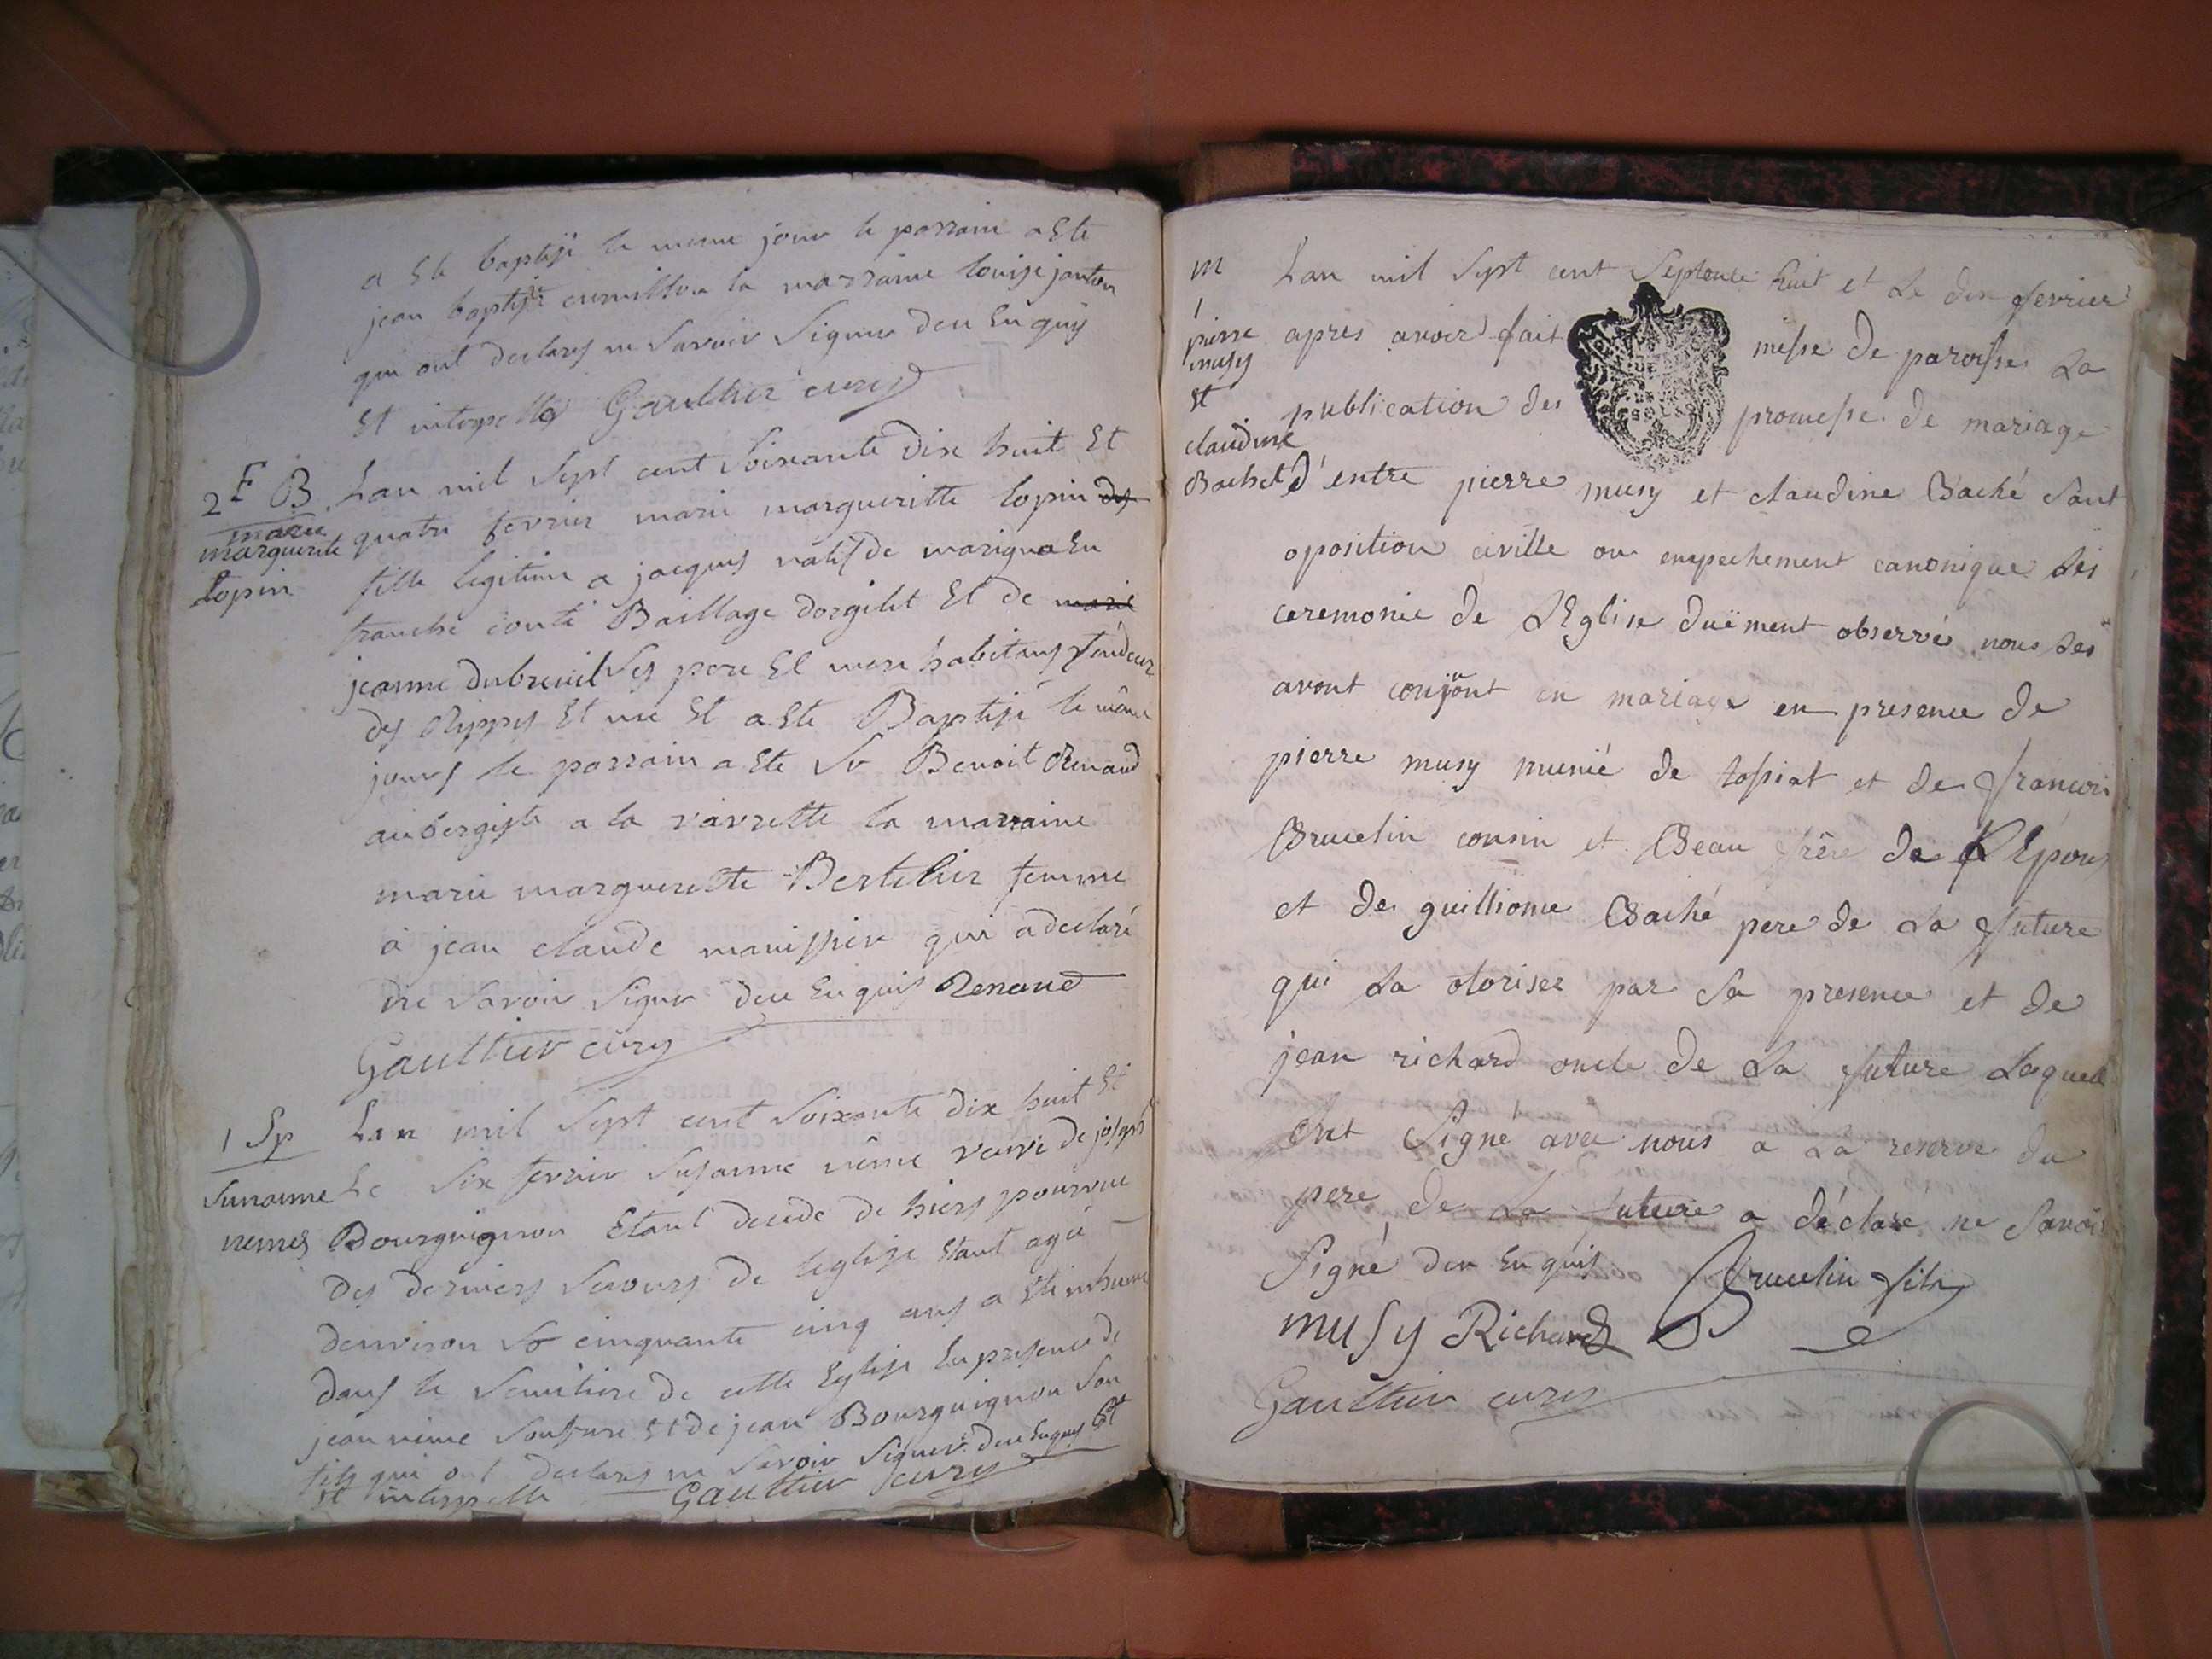 a Ete baptisé le meme jour le parrain a Ete
jean baptiste la marraine louise janton
qui ont declares ne savoir signer deu Enquis
Et interpellés Gaulthier curé
2 F B. Lan mil sept cent soixante dix huit Et
marie
marguerite
Lopin
quatre fevrier marie margueritte lopin
fille legitime a jacques natif de marigna En
franche conté Baillage dorgelet Et de
jeanne dubreuil ses pere Et mere habitans
des Rippes Et née Et a Ete Baptisé le même
jours le parrain a Ete sr Benoit Renaud
aubergiste a la ravrette la marraine
marie margueritte Bertelier femme
à jean claude manissier qui a declaré
ne savoir signer deu Enquis Renaud
Gaulthier curé
1 Sp
Susanne
nemes
Lan mil sept cent soixante dix huit Et
Le six fevrier susanne nême veuve de joseph
Bourguignon Etant decede de hiers pourvue
des derniers secours de leglise Etant agé
denviron cinquante cinq ans a Eté inhumé
dans le semitiere de cette Eglise En presence de
jean neme son frere Et de jean Bourguignon son
fils qui ont declares ne savoir signer deu Enquis Et
Et interpellé Gaulthier curé
m
1
pierre
musy
et
claudine
Bachet
Lan mil sept cent septente huit et Le dix fevrier
apres avoir fait messe de paroisse La
publication des promesse de mariage
d'entre pierre musy et claudine Baché sant
oposition civille ou empechement canonique Les
ceremonie de LEglise duëment observé nous Les
avont conjoint en mariage en presence de
pierre musy munié de tossiat et de francois
Bruelin cousin et Beau frêre de LEpous
et de guilliome Baché pere de La future
qui La otorisee par sa presence et de
jean richard oncle de La future Laquell
Ont signé avec nous a La reserve du
pere de La future a déclaré ne savoir
signé deu Enquis Bruelin fils
musy Richard
Gaulthier curé